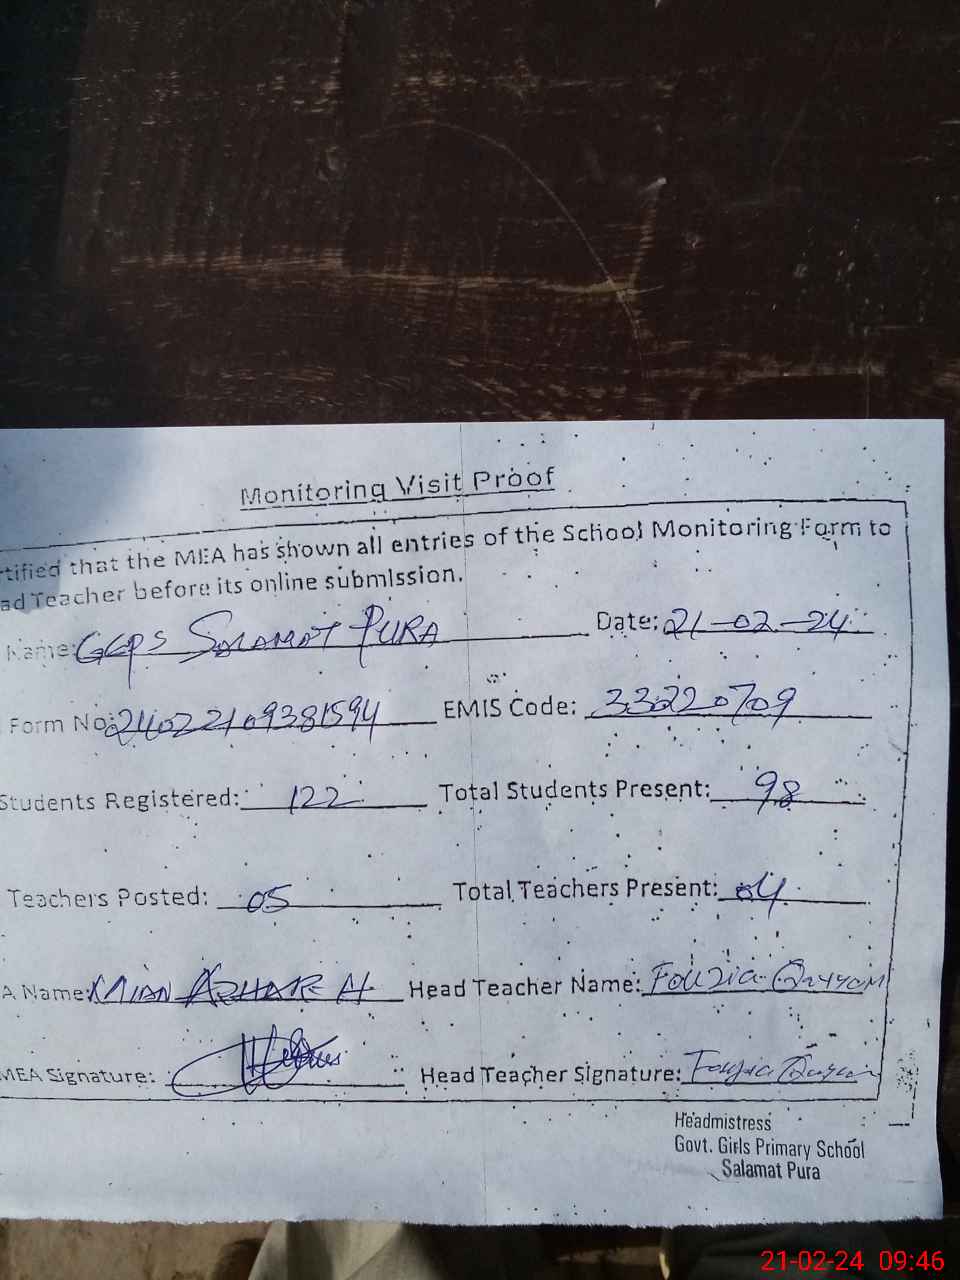 Monitoring Visit Proof
rtified that the MEA has shown all entries of the School Monitoring Form to
ad Teacher before its online submission.
Name: GGPS SALAMAT PURA Date: 21-02-24
Form No: 24022109381594 EMIS Code: 33220709
Students Registered: 122 Total Students Present: 98
Teachers Posted: 05 Total Teachers Present: 04
A Name: MIAN AZHAR H. Head Teacher Name: Fouzia Qayyom
MEA Signature: Head Teacher Signature: Fouzia Qayyom
Headmistress
Govt. Girls Primary School
Salamat Pura
21-02-24 09:46